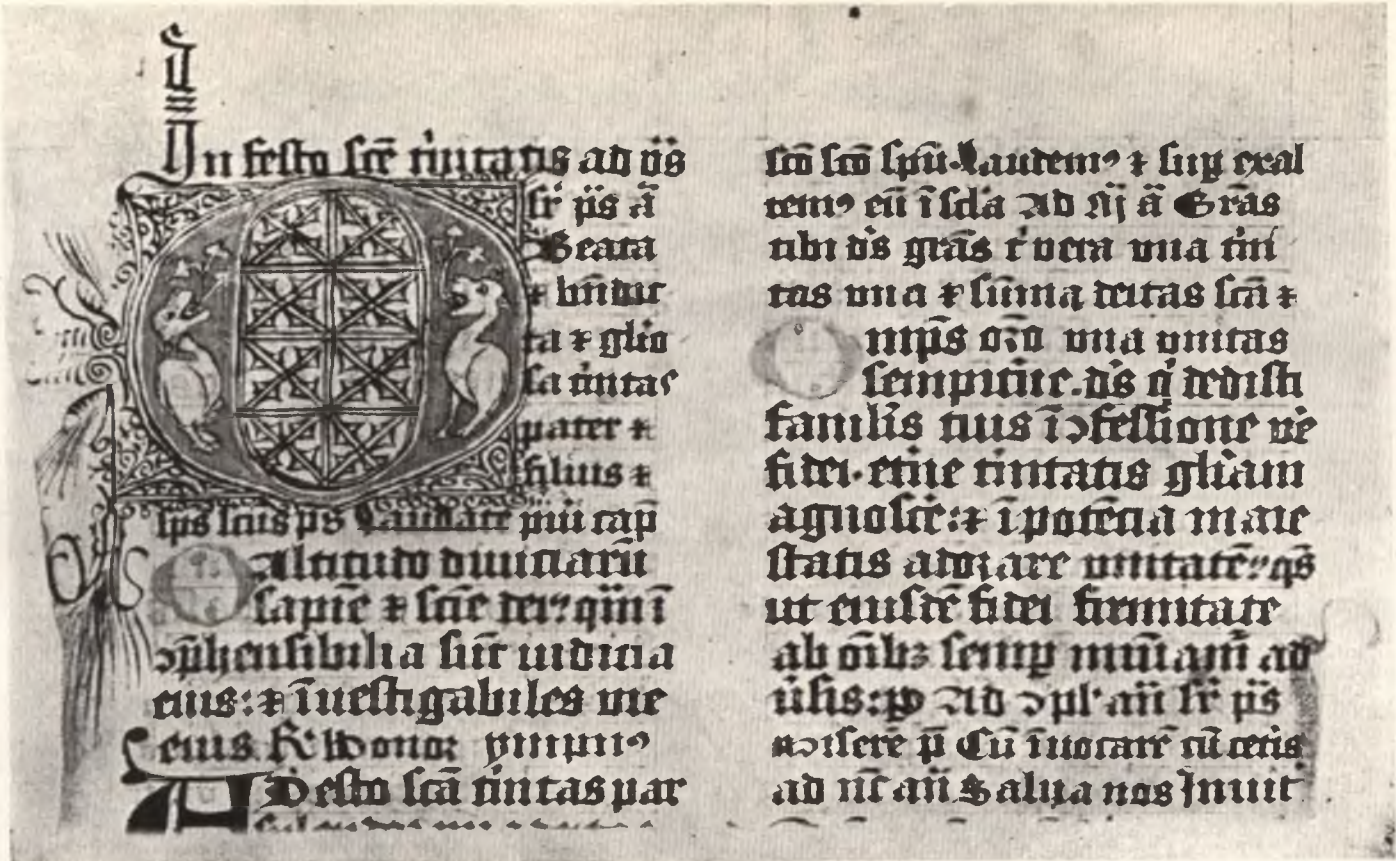 In festo scē tⁱnitatis ad v̄s
sr̄ p̄s ā
Beata
⁊ bn̄dic
ta ⁊ glo
sa tⁱnitas
pater ⁊
filius ⁊
sp̄s scūs p̄s Laudate puⁱi cap̄
O altitudo diuiciarū
sapiē ⁊ sciē dei: qm̄ ī
ↄp̄hensibilia sūt iudicia
eius: ⁊ īuestigabiles vie
eius. R̄ Honor ympnꝰ
Adesto scā tⁱnitas par
scō scō sp̄u. Laudemꝰ ⁊ suꝑ exal
temꝰ eū ī sc̄la Ad ā Grās
tibi d̄s grās t' vera vna tⁱni
tas vna ⁊ sūma deitas scā ⁊
Omp̄s vna vnitas
sempiterne. d̄s q̄ dedisti
famul̄is tuis ī ↄfessione ve
fidei. et'ne tⁱnitatis gl̄iam
agnosc'e: ⁊ ī potētia maie
statis adorare vnitatē: qs̄
ut eiusdē fidei firmitate
ab oīb; semꝑ muniam̄ ad
u'sis: ꝑ Ad ↄpl' an̄ sr̄ p̄s
Miserē p̄ Cū īuocarē cū ceīs
ad an̄ Salua nos Inuit